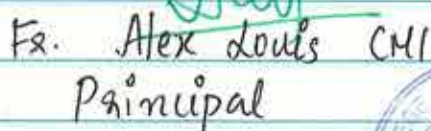 Fr. Alex Louis CMI
Principal